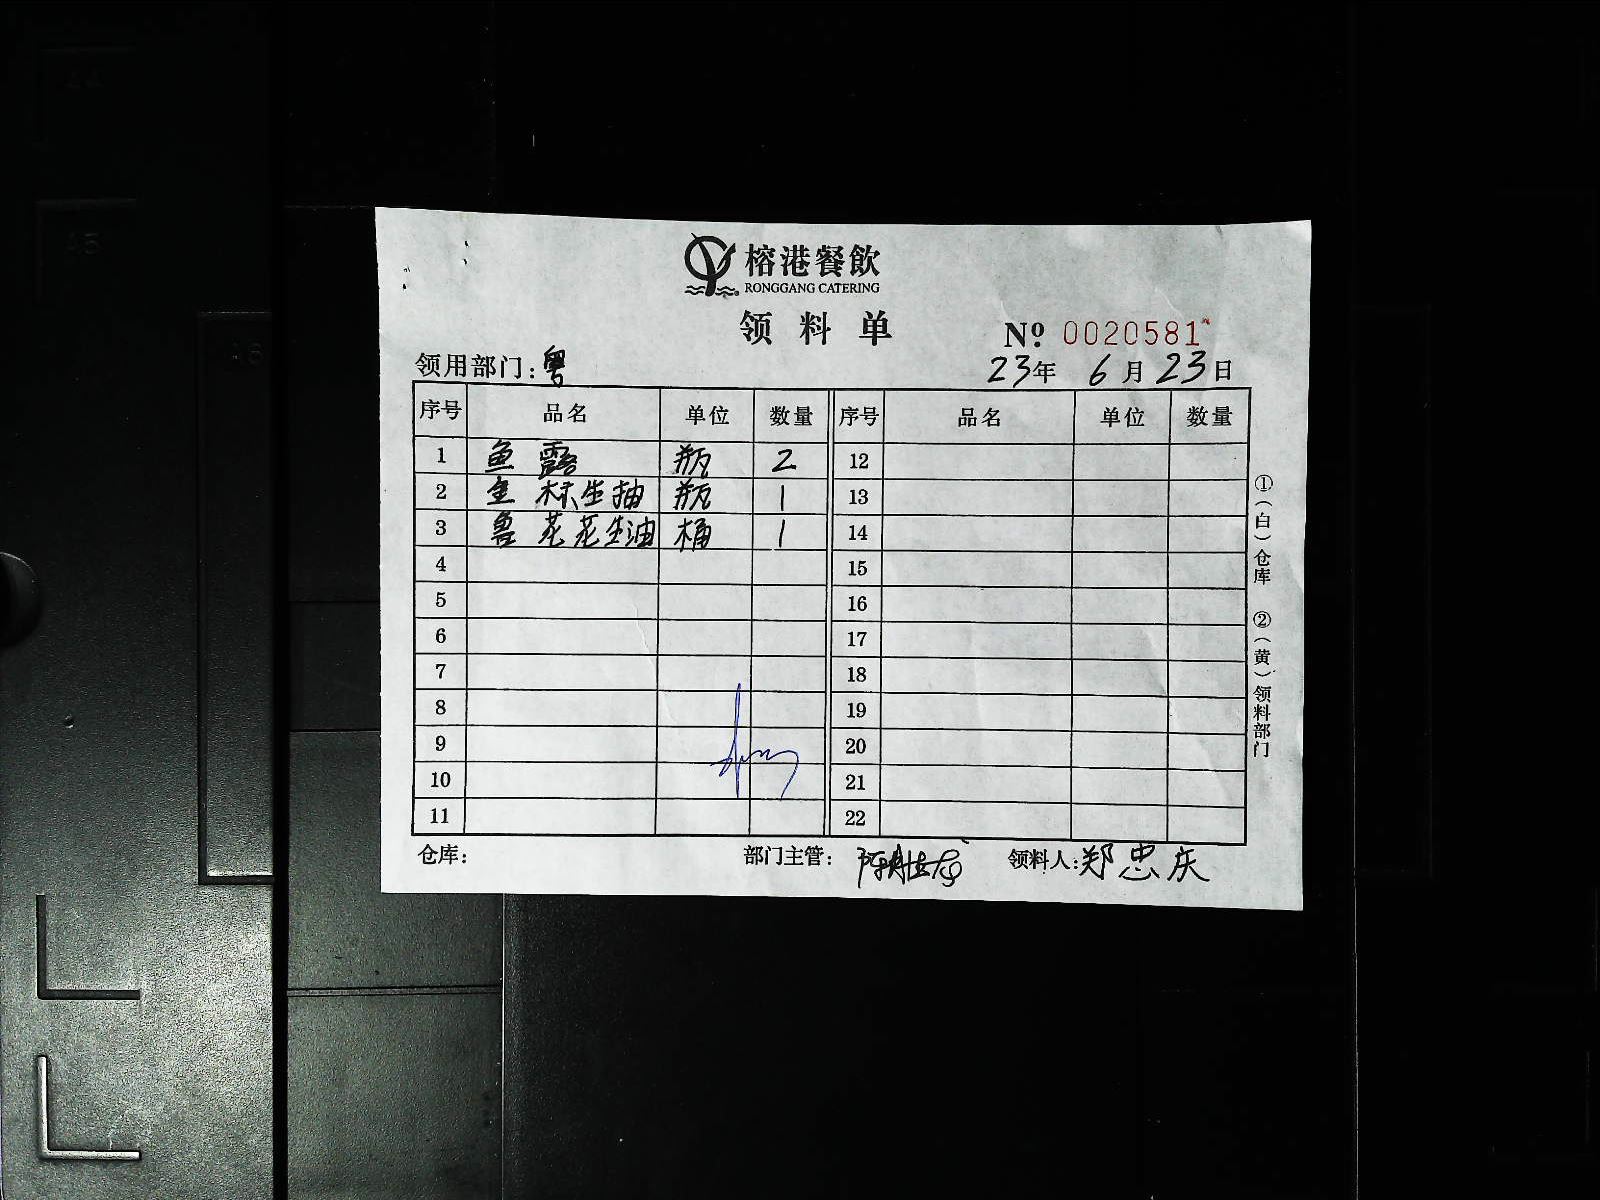 榕港餐飲
RONGGANG CATERING
领料单
№ 0020581
领用部门:粤
23年 6月 23日
序号 品名 单位 数量 序号 品名 单位 数量
1 鱼露 瓶 2 12
2 生抽 瓶 1 13
3 鲁花花生油 桶 1 14
4 15
5 16
6 17
7 18
8 19
9 20
10 21
11 22
仓库: 部门主管: 领料人:郑忠庆
①(白)仓库 ②(黄)领料部门
A5